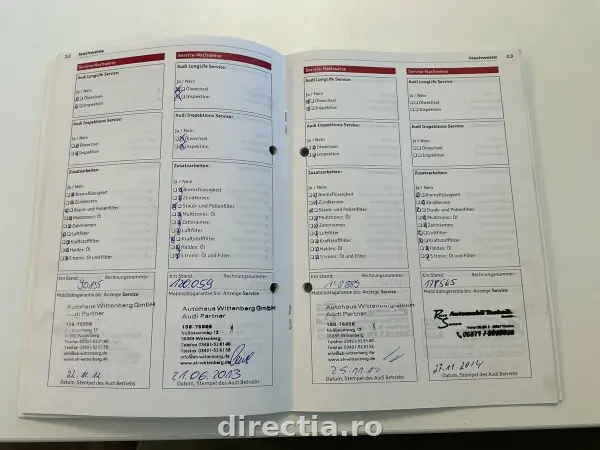 22 Nachweise
Service-Nachweise
Audi LongLife Service:
Ja / Nein
Ölwechsel
Inspektion
Audi Inspektions Service:
Ja / Nein
Ölwechsel
Inspektion
Zusatzarbeiten:
Ja / Nein
Bremsflüssigkeit
Zündkerzen
Staub- und Pollenfilter
Multitronic: Öl
Zahnriemen
Luftfilter
Kraftstofffilter
Haldex: Öl
S tronic: Öl und Filter
Km Stand: Rechnungsnummer:
Mobilitätsgarantie bis: Anzeige Service
Autohaus Wittenberg GmbH
Audi Partner
188-76856
06886 Wittenberg
www.ah-wittenberg.de
22.11.12
Datum, Stempel des Audi Betriebs
Service-Nachweise
Audi LongLife Service:
Ja / Nein
Ölwechsel
Inspektion
Audi Inspektions Service:
Ja / Nein
Ölwechsel
Inspektion
Zusatzarbeiten:
Ja / Nein
Bremsflüssigkeit
Zündkerzen
Staub- und Pollenfilter
Multitronic: Öl
Zahnriemen
Luftfilter
Kraftstofffilter
Haldex: Öl
S tronic: Öl und Filter
Km Stand: Rechnungsnummer:
Mobilitätsgarantie bis: Anzeige Service
Autohaus Wittenberg GmbH
Audi Partner
188-76856
06886 Wittenberg
www.ah-wittenberg.de
21.06.2013
Datum, Stempel des Audi Betriebs
Nachweise 23
Service-Nachweise
Audi LongLife Service:
Ja / Nein
Ölwechsel
Inspektion
Audi Inspektions Service:
Ja / Nein
Ölwechsel
Inspektion
Zusatzarbeiten:
Ja / Nein
Bremsflüssigkeit
Zündkerzen
Staub- und Pollenfilter
Multitronic: Öl
Zahnriemen
Luftfilter
Kraftstofffilter
Haldex: Öl
S tronic: Öl und Filter
Km Stand: Rechnungsnummer:
Mobilitätsgarantie bis: Anzeige Service
Autohaus Wittenberg GmbH
Audi Partner
188-76856
06886 Wittenberg
www.ah-wittenberg.de
Datum, Stempel des Audi Betriebs
Service-Nachweise
Audi LongLife Service:
Ja / Nein
Ölwechsel
Inspektion
Audi Inspektions Service:
Ja / Nein
Ölwechsel
Inspektion
Zusatzarbeiten:
Ja / Nein
Bremsflüssigkeit
Zündkerzen
Staub- und Pollenfilter
Multitronic: Öl
Zahnriemen
Luftfilter
Kraftstofffilter
Haldex: Öl
S tronic: Öl und Filter
Km Stand: Rechnungsnummer:
Mobilitätsgarantie bis: Anzeige Service
Automobil Technik
27.11.2014
Datum, Stempel des Audi Betriebs
directia.ro